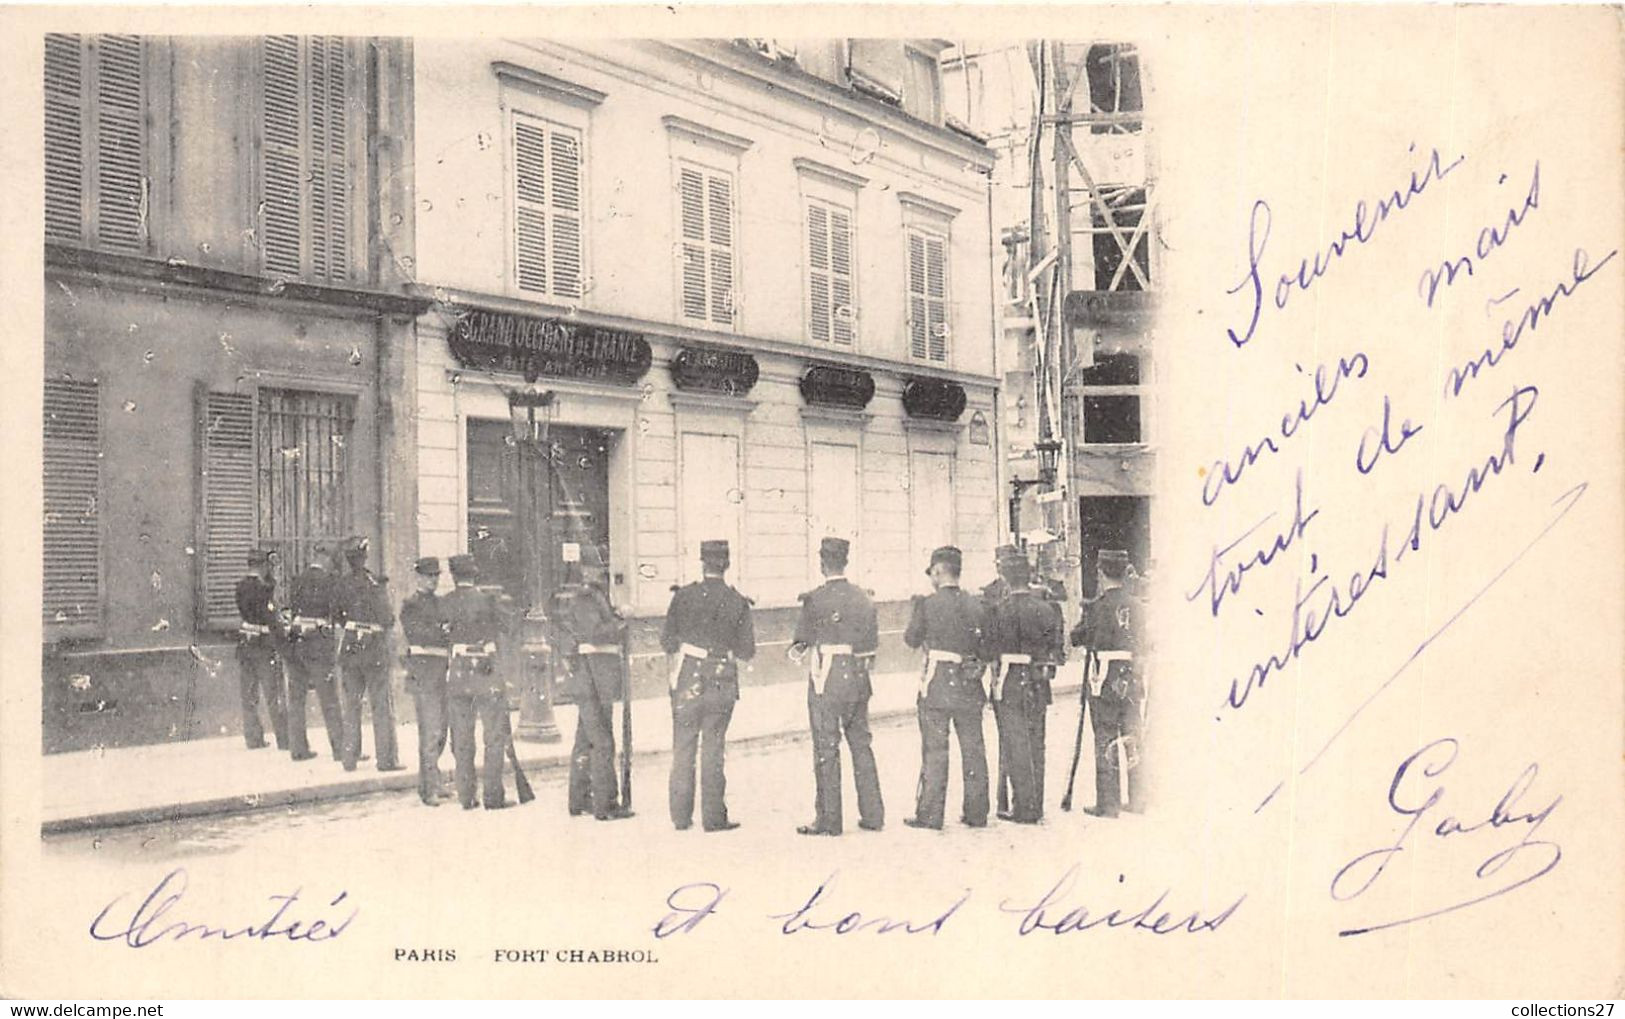 GRAND OCCIDENT DE FRANCE
Souvenir
anciens mais
tout de même
intéressant.
Gaby
Amitiés et bons baisers
PARIS FORT CHABROL
collections27